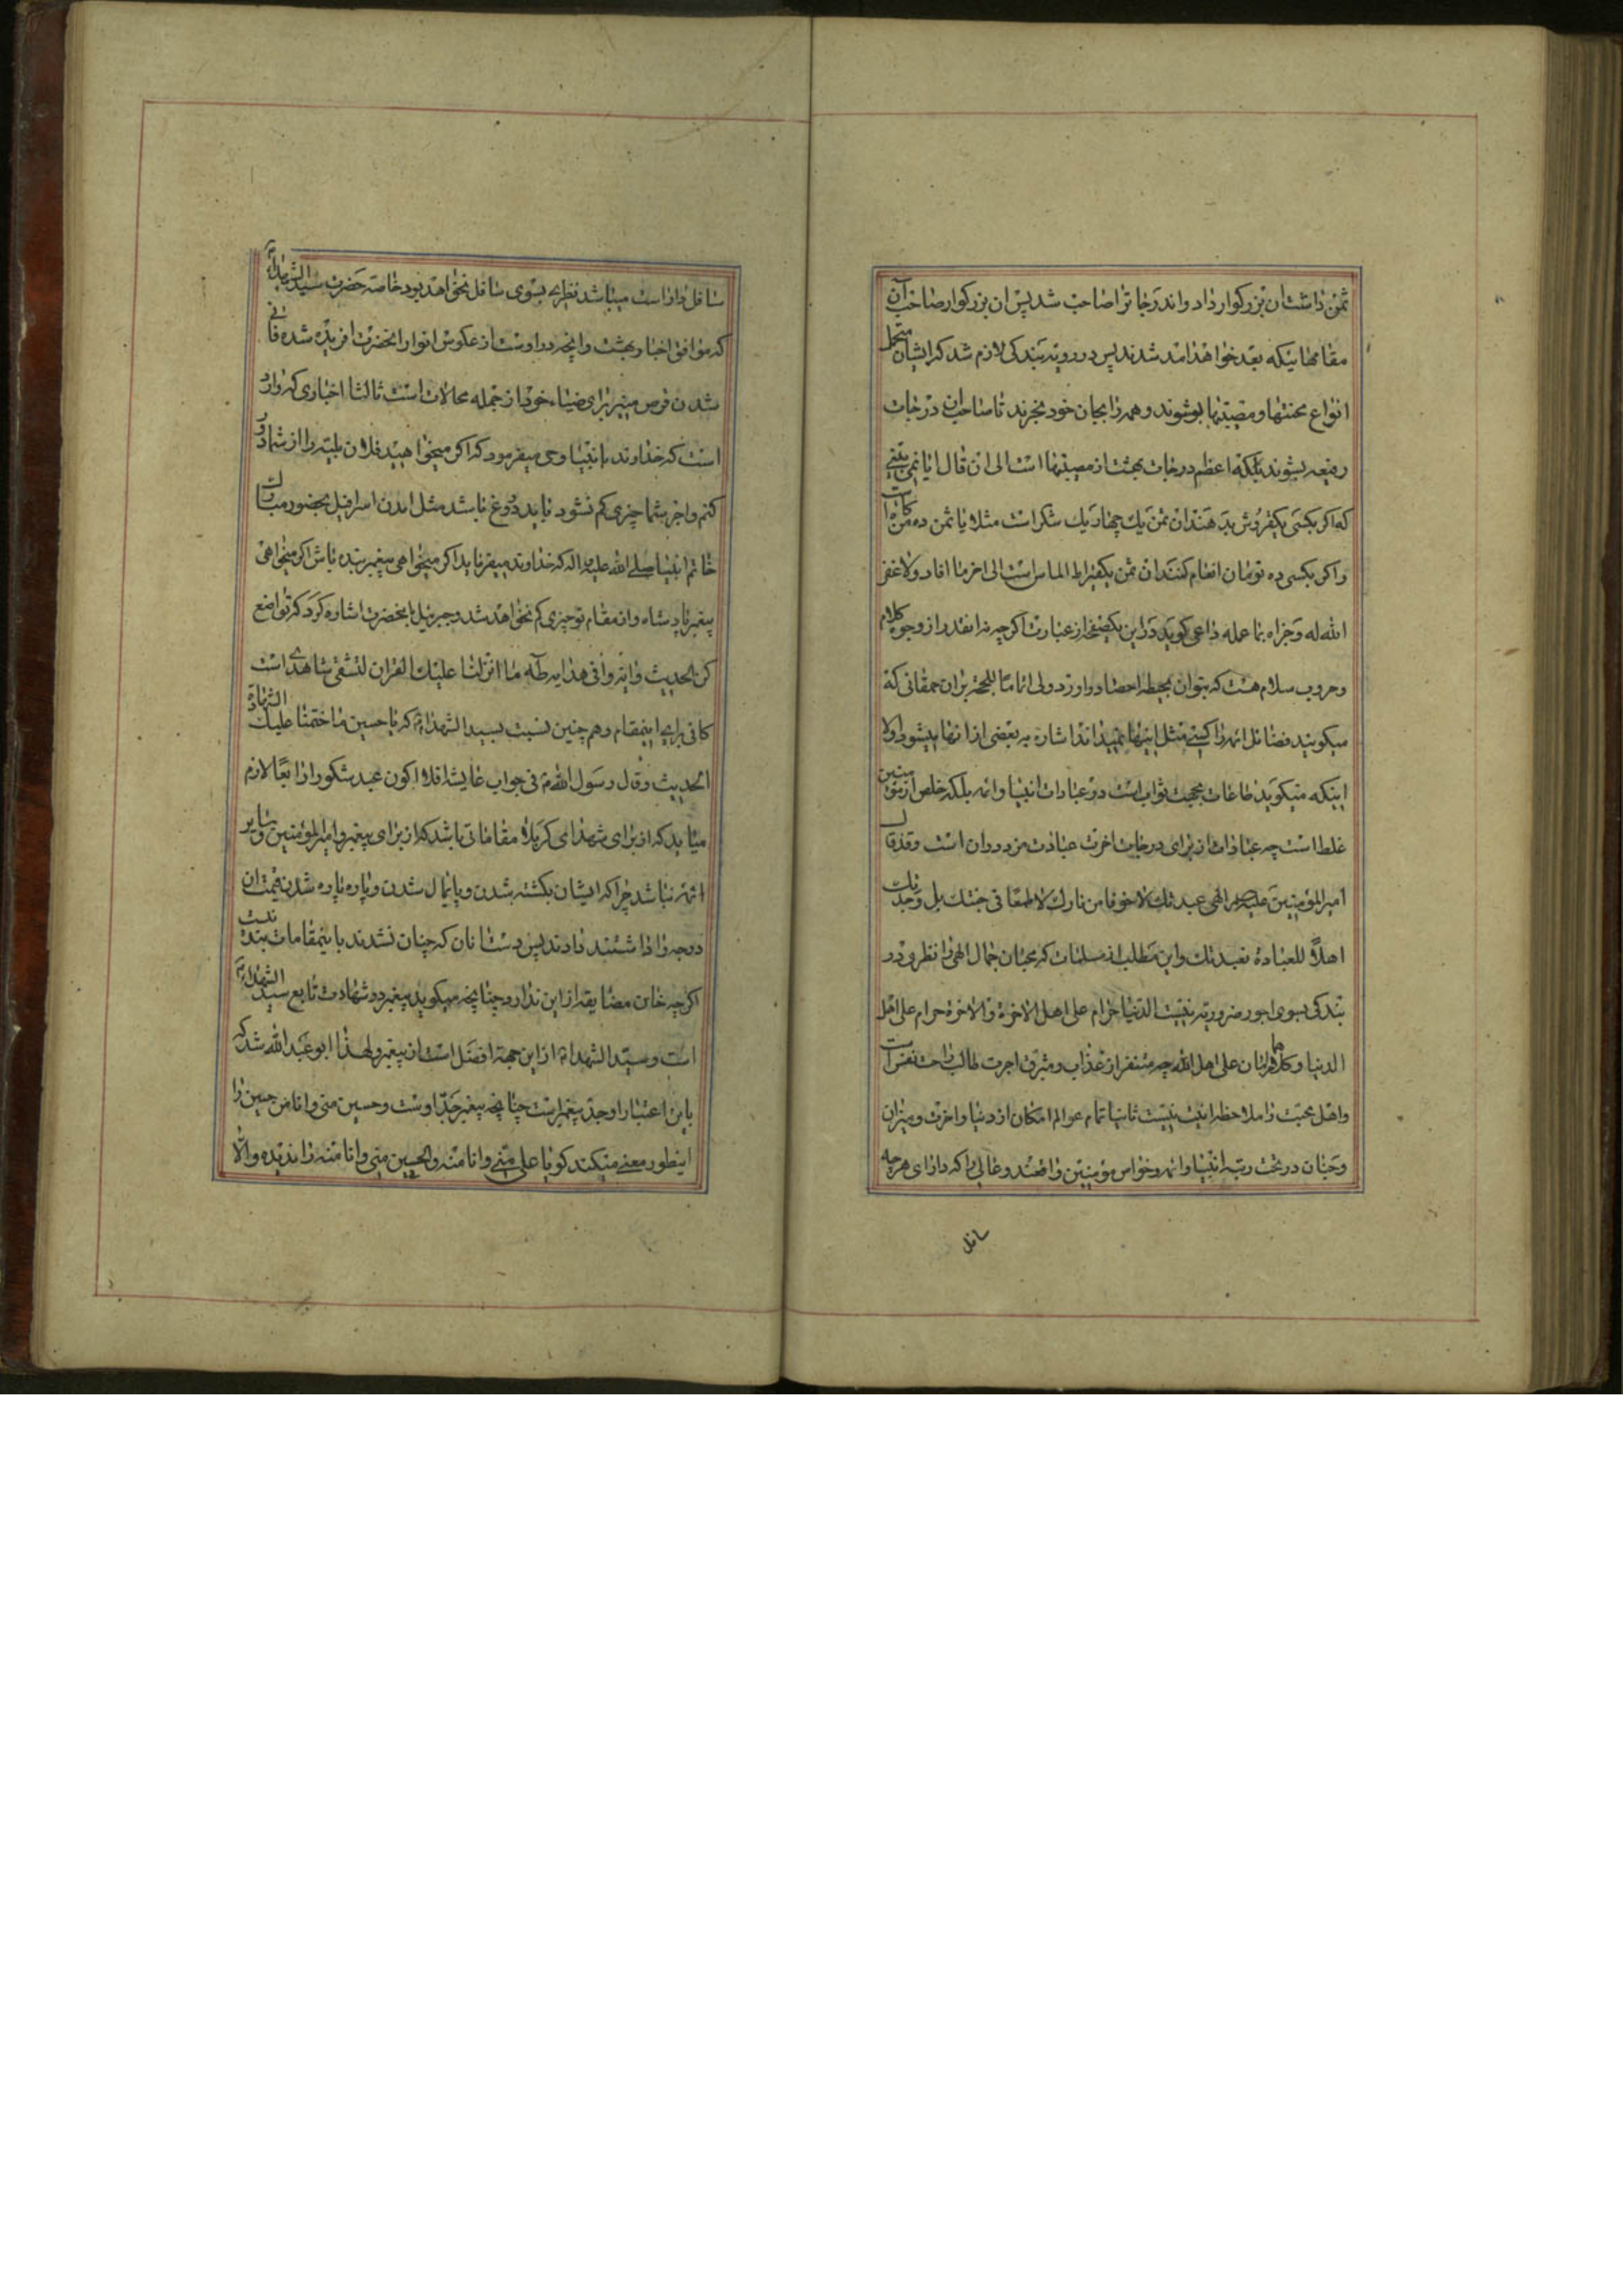 ثمن داشت ان بزرکوار داد و اندرجا ترا صاحب شد پس ان بزرکوار صاحب آن
مقامهائیکه بعد خواهند امد شدند پس در رویّه بندکی لازم شد که ایشان متحمل
انواع محنتها و مصیبتها بوشوند و همه را بجان خود بخرند تا صاحب ان درجات
رفیعه بشوند بلکه اعظم درجات بهشت از مصیبتها است الی ان قال ایا نمی بینی
که اکر بکسی یکقروش بدهند ان ثمن یک چهاریک شکر است مثلا یا ثمن ده من کاه است
و اکر بکسی ده تومان انعام کنند ان ثمن یکقیراط الماس است الی اخر ما افاد ولا غفر
الله له و جزاه بما عمله داعی کوید در این یکصفحه از عبارت اکرچه نه انقدر از وجوه کلام
و حروب سلام هست که بتوان بحیطه احصاء در اورد ولی اتماما للحجه بر ان حمقانی که
میکویند فضائل ائمه را کسی مثل اینها نفهمیده اند اشاره به بعضی از انها میشود اولا
اینکه میکوید طاعات بجهت ثواب است در عبادات انبیا و ائمه بلکه خلص از مؤمنین
غلط است چه عبادات از برای درجات اخرت عبادت مزدوران است و قد قال
امیرالمؤمنین علیه السلام الهی عبدتک لا خوفا من نارک و لا طمعا فی جنتک بل وجدتک
اهلاً للعبادة فعبدتک و این مطلب از مسلمات که محبان جمال الهی را نظری در
بندکی بسوی اجور ضروریه نیست الدنیا حرام علی اهل الاخرة و الاخرة حرام علی اهل
الدنیا و کلاهما حرامان علی اهل الله چه متنفر از عذاب و مترقب اجرت طالب راحت نفس است
و اهل محبت را ملاحظه انیت نیست ثانیا تمام عوالم امکان از دنیا و اخرت و میزان
و جنان در تحت رتبه انبیا و ائمه و خواص مؤمنین واقعند و عالی را که دارای هرچه
سافل
سافل داراست میباشد نظری بسوی سافل نخواهد بود خاصه حضرت سید الشهداء
که موافق اخبار بهشت و انچه در اوست از عکوس انوار انحضرت افریده شده فانی
شدن قرص منیر برای ضیاء خود از جمله محالات است ثالثا اخباری که وارد
است که خداوند بانبیا وحی میفرمود که اکر میخواهید فلان بلیه را از شما دور
کنم و اجر شما چیزی کم نشود باید دروغ باشد مثل امدن اسرافیل بحضور مبارک
خاتم انبیا صلی الله علیه و اله که خداوند میفرماید اکر میخواهی پیغمبر بنده باش اکر میخواهی
پیغمبر پادشاه و از مقام تو چیزی کم نخواهد شد و جبرئیل بانحضرت اشاره کرد که تواضع
کن الحدیث و ایه وافی هدایه طه ما انزلنا علیک القران لتشقی شاهدی است
کافی برای اینمقام و هم چنین نسبت بسید الشهداء که یا حسین ما ختمنا علیک الشهادة
الحدیث و قال رسول الله فی جواب عایشه افلا اکون عبد شکورا رابعا لازم
میاید که از برای شهدای کربلا مقاماتی باشد که از برای پیغمبر و امیرالمؤمنین و سایر
ائمه نباشد چرا که ایشان بکشته شدن و پایمال شدن و پاره پاره شدن قیمت ان
درجه را داشتند دادند پس دستانان که چنان نشدند باینمقامات بند نیست
اکرچه خاین مضایقه از این ندارد چنانچه میکوید پیغمبر در شهادت تابع سید الشهداء
است و سید الشهداء از این جهة افضل است از پیغمبر و لهذا ابو عبد الله شد که
باین اعتبار او جد پیغمبر است چنانچه پیغمبر جد اوست و حسین منی و انا من حسین را
اینطور معنی میکند کویا علی منی و انا منه و الحسین منی و انا منه را ندیده و الا